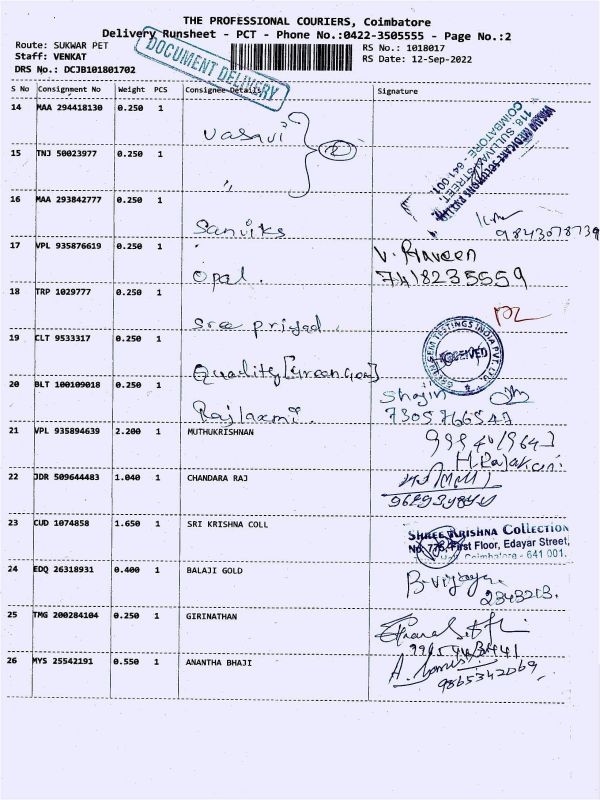 THE PROFESSIONAL COURIERS, Coimbatore
Delivery Runsheet - PCT - Phone No.:0422-3505555 - Page No.:2
Route: SUKWAR PET
RS No.: 1018017
Staff: VENKAT
RS Date: 12-Sep-2022
DRS No.: DCJB101801702
DOCUMENT DELIVERY
S No Consignment No Weight PCS Consignee Details Signature
14 MAA 294418130 0.250 1
Vasavi
15 TNJ 50023977 0.250 1
"
118, SULLIVAN STREET,
COIMBATORE - 641 001.
16 MAA 293842777 0.250 1
Sanviks
9843078739
17 VPL 935876619 0.250 1
Opal.
V. Praveen
7418235559
18 TRP 1029777 0.250 1
Sree priyad.
19 CLT 9533317 0.250 1
Quality [Green Gen]
RECEIVED
20 BLT 100109018 0.250 1
Rajlaxmi.
Shajin
7305766547
21 VPL 935894639 2.200 1 MUTHUKRISHNAN
22 JDR 509644483 1.040 1 CHANDARA RAJ
23 CUD 1074858 1.650 1 SRI KRISHNA COLL
SHREE KRISHNA COLLECTION
First Floor, Edayar Street,
Coimbatore - 641 001.
24 EDQ 26318931 0.400 1 BALAJI GOLD
2343213.
25 TMG 200284104 0.250 1 GIRINATHAN
26 MYS 25542191 0.550 1 ANANTHA BHAJI
9865342069